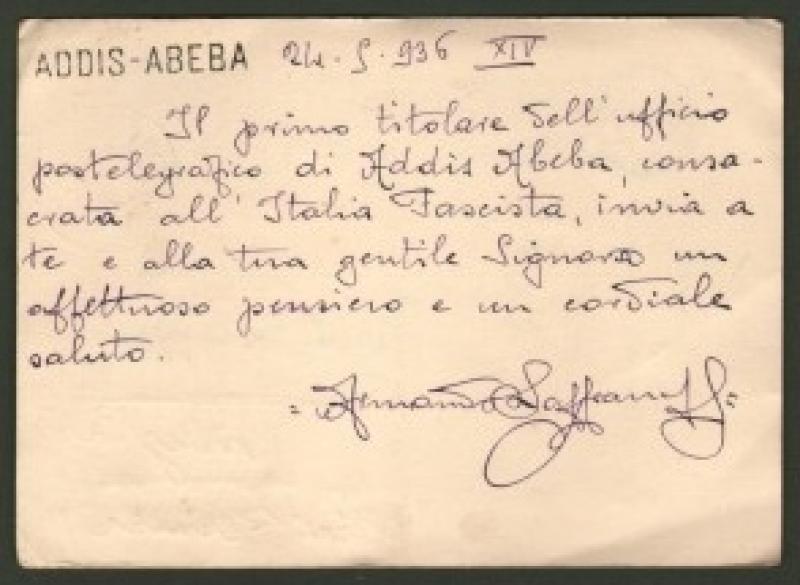 ADDIS-ABEBA 24-5-936 XIV
Il primo titolare dell'ufficio
postelegrafico di Addis Abeba, consa-
crata all'Italia Fascista, invia a
te e alla tua gentile Signora un
affettuoso pensiero e un cordiale
saluto.